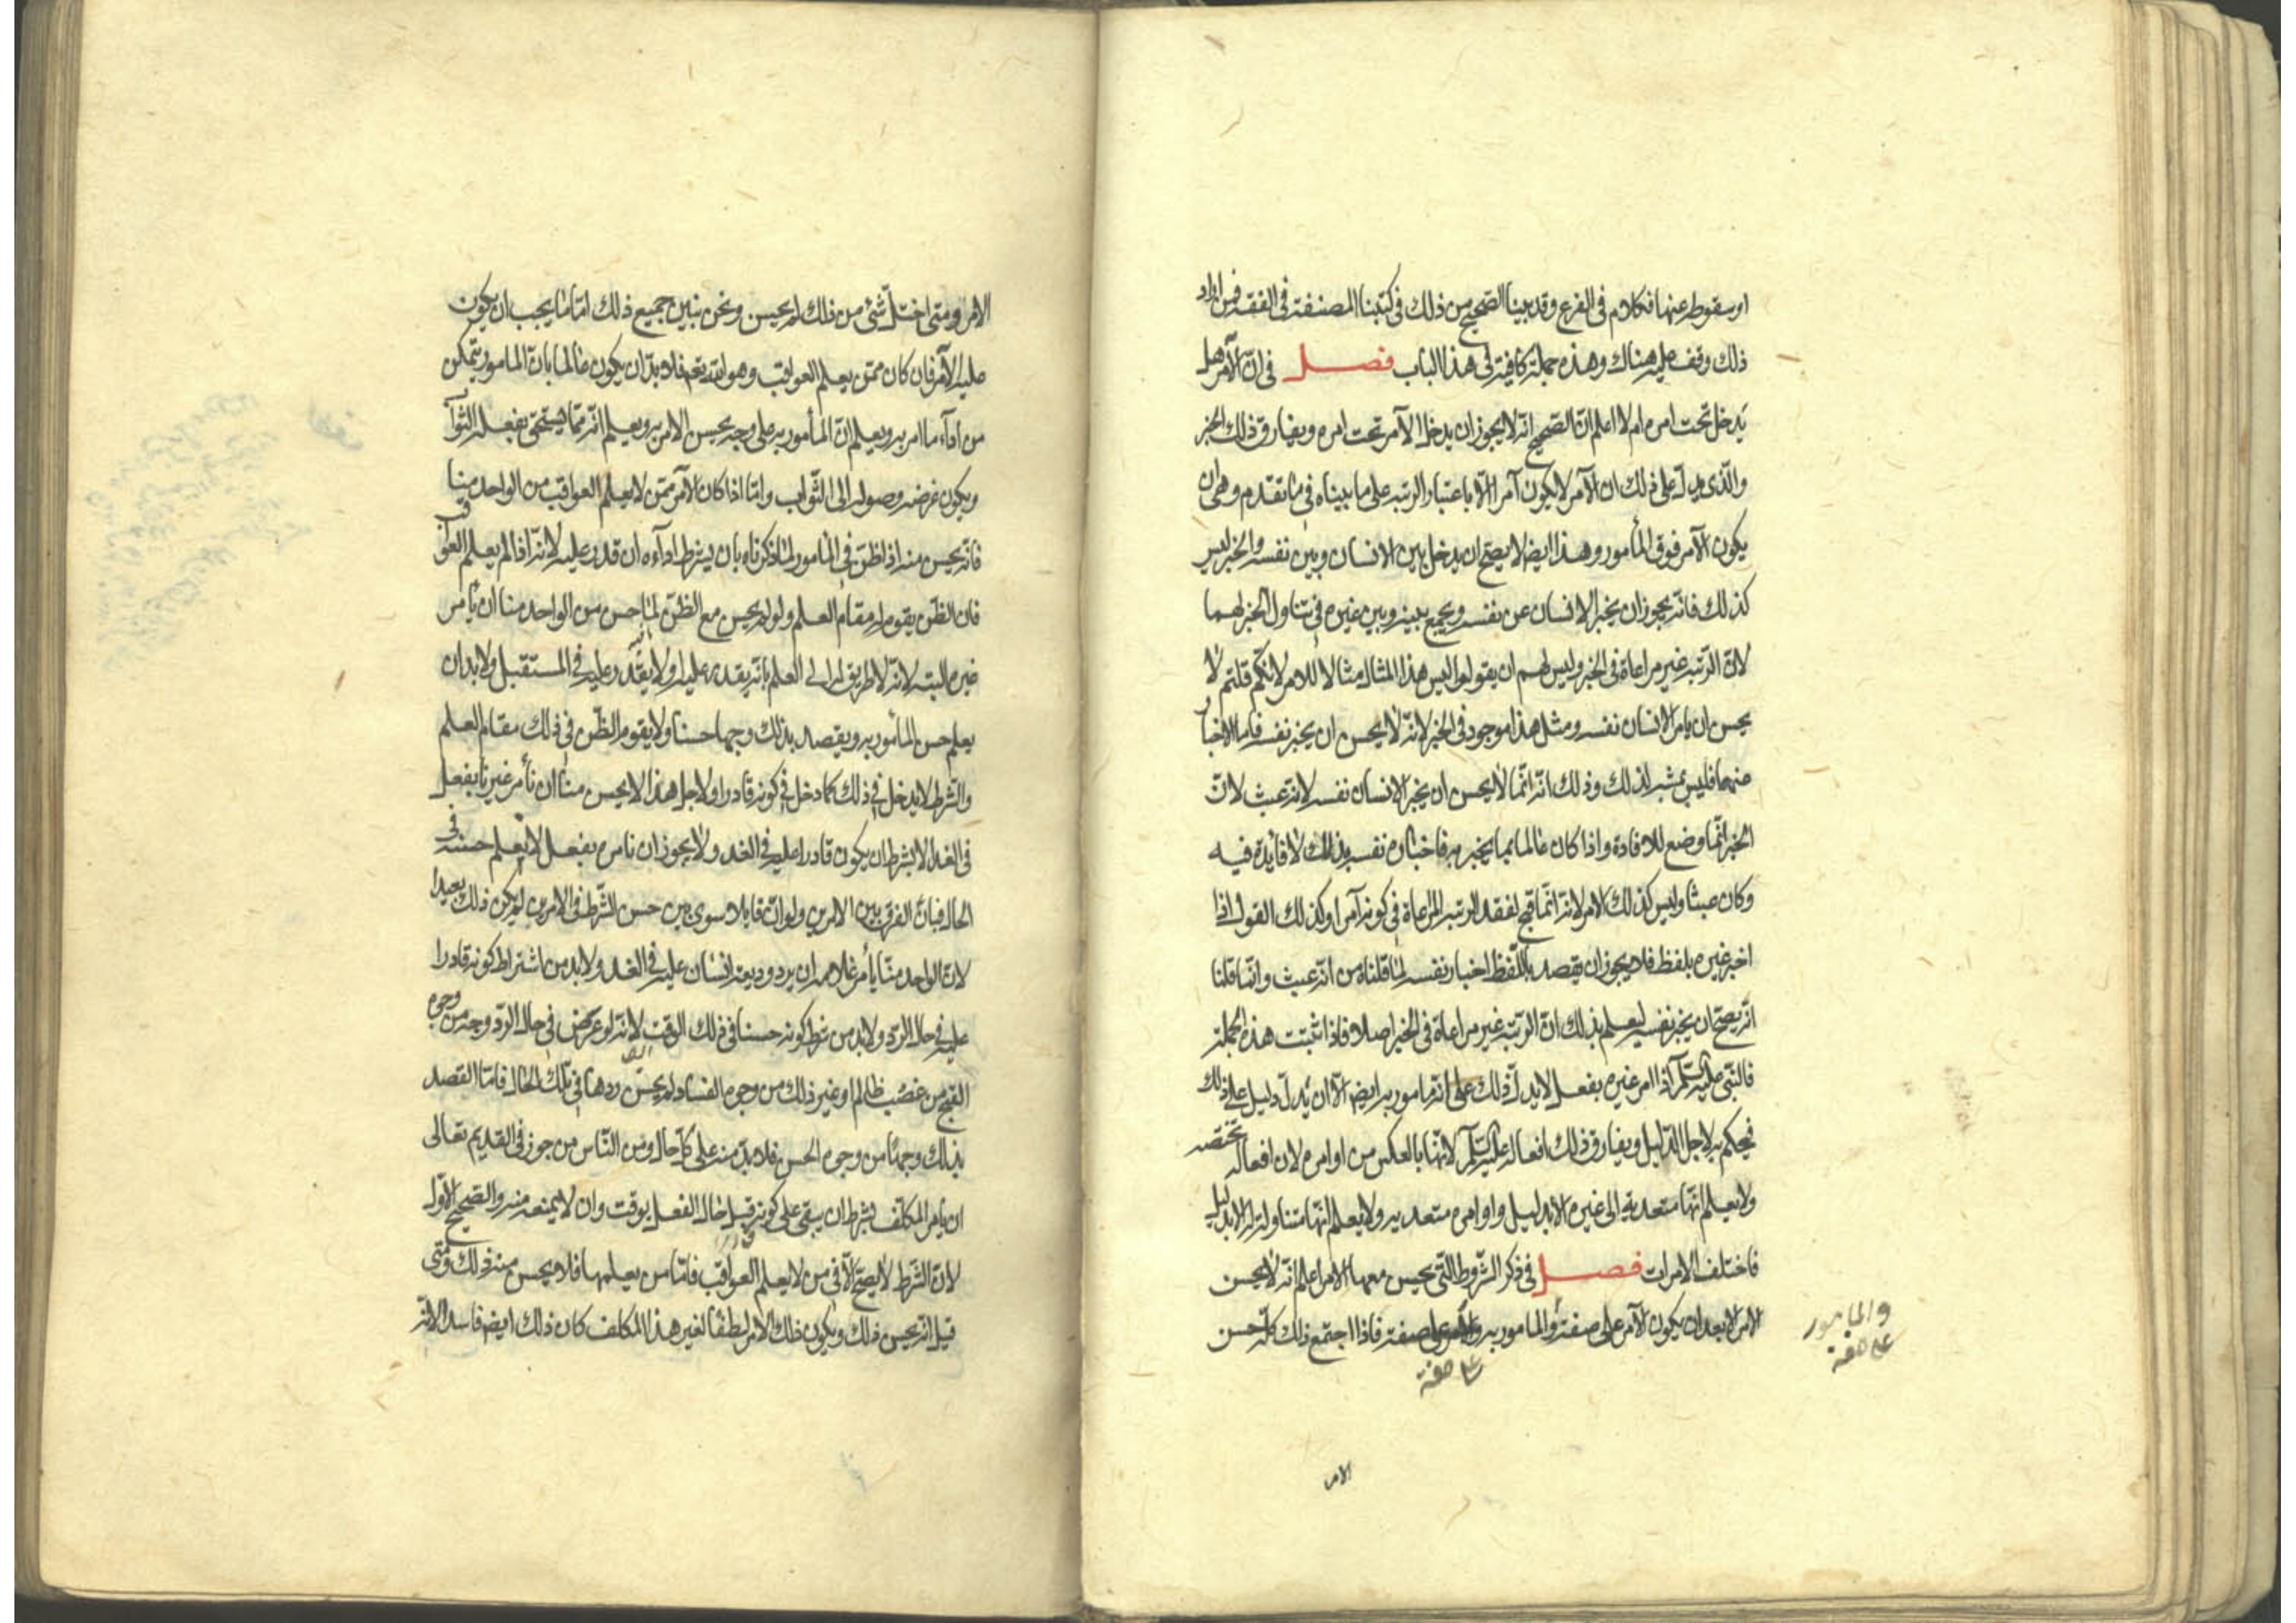 او سقوطه عنها فكلام في الفرع وقد بينا الصحيح من ذلك في كتبنا المصنفة في الفقه فمن اراد
ذلك وقف عليه هناك وهذه جملة كافية في هذا الباب فصل في ان الآمر هل
يدخل تحت امره ام لا اعلم ان الصحيح انه لا يجوز ان يدخل الآمر تحت امره ويفارق ذلك الخبر
والذي يدل على ذلك ان الآمر لا يكون آمرا الا باعتبار الرتبة على ما بيناه في ما تقدم وهي ان
يكون الآمر فوق المأمور وهذا ايضا لا يصح ان يدخل بين الانسان وبين نفسه والخبر ليس
كذلك فانه يجوز ان يخبر الانسان عن نفسه ويجمع بينه وبين غيره في تناول الخبر لهما
لان الرتبة غير مراعاة في الخبر وليس لهم ان يقولوا اليس هذا المثال مثالا للامر لانكم قلتم لا
يحسن ان يامر الانسان نفسه ومثل هذا موجود في الخبر لانه لا يحسن ان يخبر نفسه فاما الاخبار
عنها فليس بمشبه لذلك وذلك انه انما لا يحسن ان يخبر الانسان نفسه لانه عبث لان
الخبر انما وضع للافادة واذا كان عالما بما يخبر به فاخباره نفسه بذلك لا فايدة فيه
وكان عبثا وليس كذلك الامر لانه انما قبح لفقد الرتبة المراعاة في كونه آمرا وكذلك القول اذا
اخبر غيره بلفظ فلا يجوز ان يقصد باللفظ اخبار نفسه لما قلناه من انه عبث وانما قلنا
انه يصح ان يخبر نفسه ليعلم بذلك ان الرتبة غير مراعاة في الخبر اصلا فاذا ثبتت هذه الجملة
فالنبي عليه السلم اذا امر غيره بفعل لا يدل ذلك على انه مامور به ايضا الا ان يدل دليل على ذلك
فيحكم به لاجل الدليل ويفارق ذلك افعاله عليه السلم لانها بالعكس من اوامره لان افعاله تختصه
ولا يعلم انها متعدية الى غيره الا بدليل واوامره متعدية ولا يعلم انها متناولة له الا بدليل
فاختلف الامران فصل في ذكر الشروط التي يحسن معها الامر اعلم انه لا يحسن
الامر الا بعد ان يكون الآمر على صفة والمامور به على صفة فاذا اجتمع ذلك كله حسن
والمامور
على صفة
على صفة
الامر
الامر ومتى اختل شئ من ذلك لم يحسن ونحن نبين جميع ذلك اما ما يجب ان يكون
عليه الآمر فان كان ممن يعلم العواقب وهو الله تعالى فلا بد ان يكون عالما بان المامور يتمكن
من اداء ما امر به ويعلم ان المأمور به على وجه يحسن الامر به ويعلم انه مما يستحق بفعله الثواب
ويكون غرضه وصوله الى الثواب واما اذا كان الآمر ممن لا يعلم العواقب من الواحد منا
فانه يحسن منه اذا ظن في المامور لما ذكرناه بان يشرط اداءه ان قدر عليه لانه اذا لم يعلم العواقب
فان الظن يقوم له مقام العلم ولو لم يحسن مع الظن لما حسن من الواحد منا ان يأمر
غيره البته لانه لا طريق له الى العلم بانه يقدر عليه او لا يقدر عليه في المستقبل ولا بد ان
يعلم حسن المأمور به ويقصد بذلك وجها حسنا ولا يقوم الظن في ذلك مقام العلم
والشرط لا يدخل في ذلك كما دخل في كونه قادرا ولاجل هذا لا يحسن منا ان نأمر غيرنا بفعل
في الغد الا بشرط ان يكون قادرا عليه في الغد ولا يجوز ان نامره بفعل لا يعلم حسنه في
الحال فبان الفرق بين الامرين ولو ان قايلا سوى بين حسن الشرط في الامرين لم يكن ذلك بعيدا
لان الواحد منا يأمر غلامه ان يرد وديعة انسان عليه في الغد ولا بد من اشتراط كونه قادرا
عليه في حال الرد ولا بد من شرط كونه حسنا في ذلك الوقت لانه لو عرض في حال الرد وجه من وجوه
القبح من غصب ظالم او غير ذلك من وجوه الفساد لم يحسن ردها في تلك الحال فاما القصد
بذلك وجها من وجوه الحسن فلا بد منه على كل حال ومن الناس من جوز في القديم تعالى
ان يامر المكلف بشرط ان يبقى على كونه قادرا قبل حال الفعل بوقت وان لا يمنعه منه والصحيح الاول
لان الشرط لا يصح الا في من لا يعلم العواقب فاما من يعلمها فلا يحسن منه ذلك ومتى
قيل انه يحسن ذلك ويكون ذلك الامر لطفا لغير هذا المكلف كان ذلك ايضا فاسدا لانه